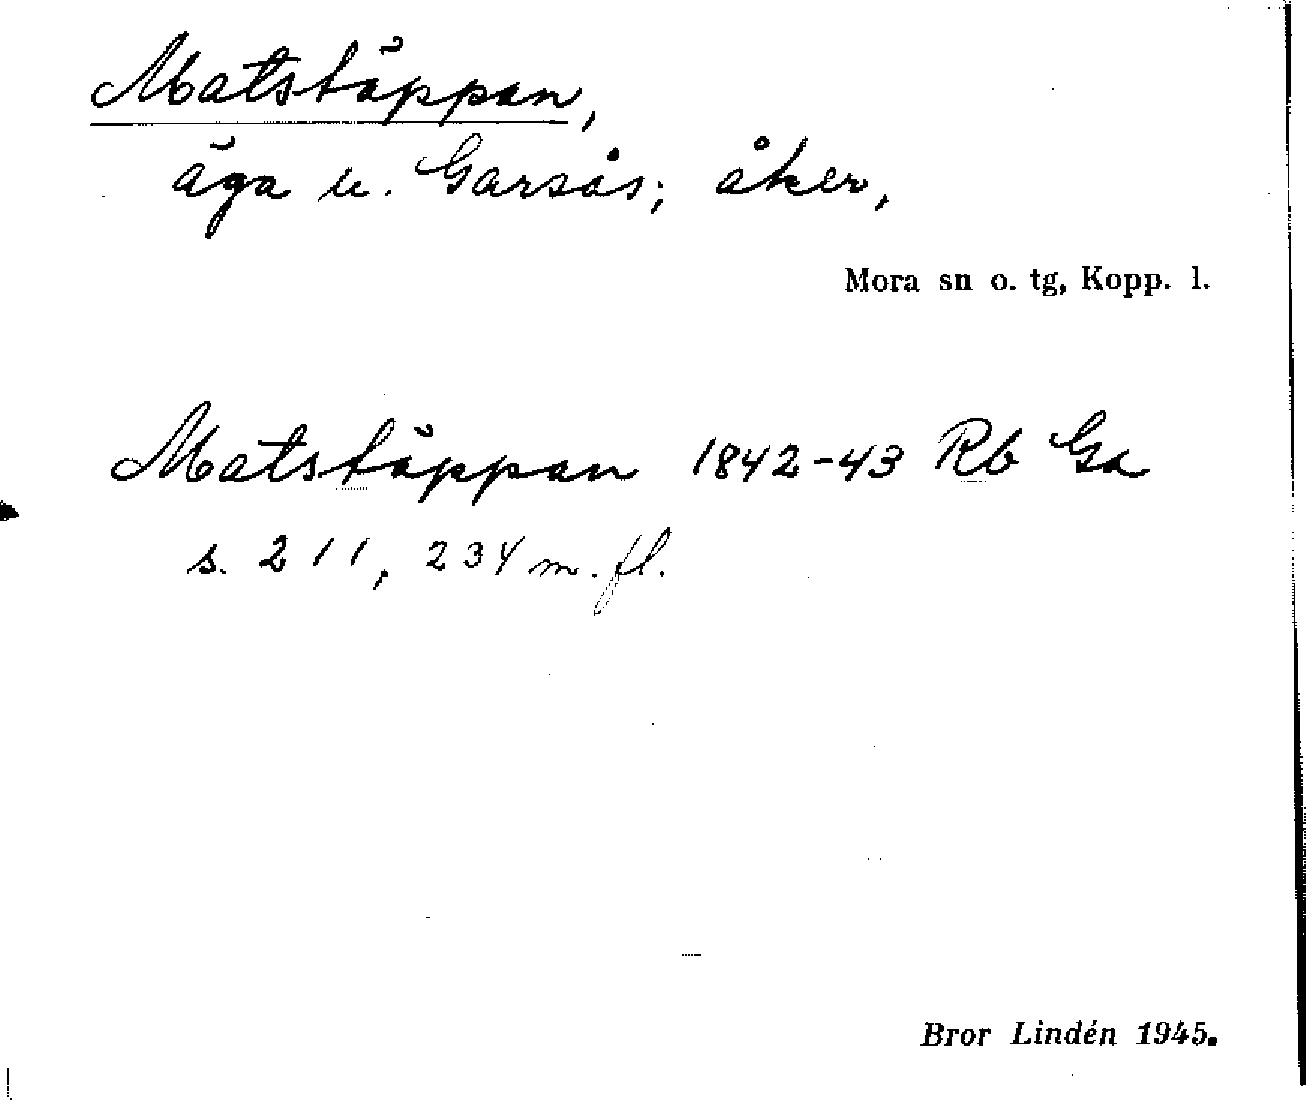 Matstäppan,
äga u. Garsås; åker,
Mora sn o. tg, Kopp. l.
Matstäppan 1842-43 Rb Ga
s. 211, 234 m. fl.
Bror Lindén 1945.